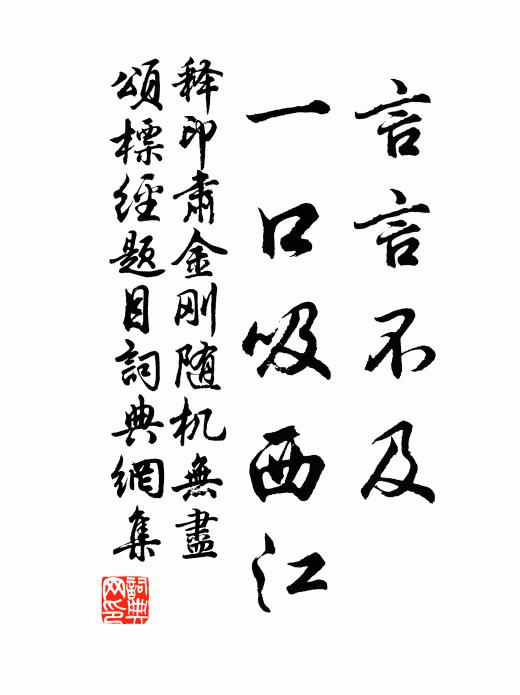 言言不及
一口吸西江
释印肃金刚随机無盡
頌標經題目詞典網集
詞典网印